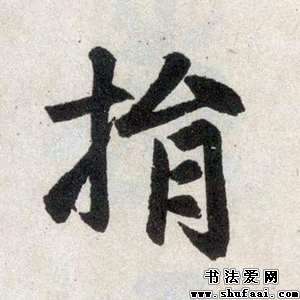 捐
书法爱网
www.shufaai.com